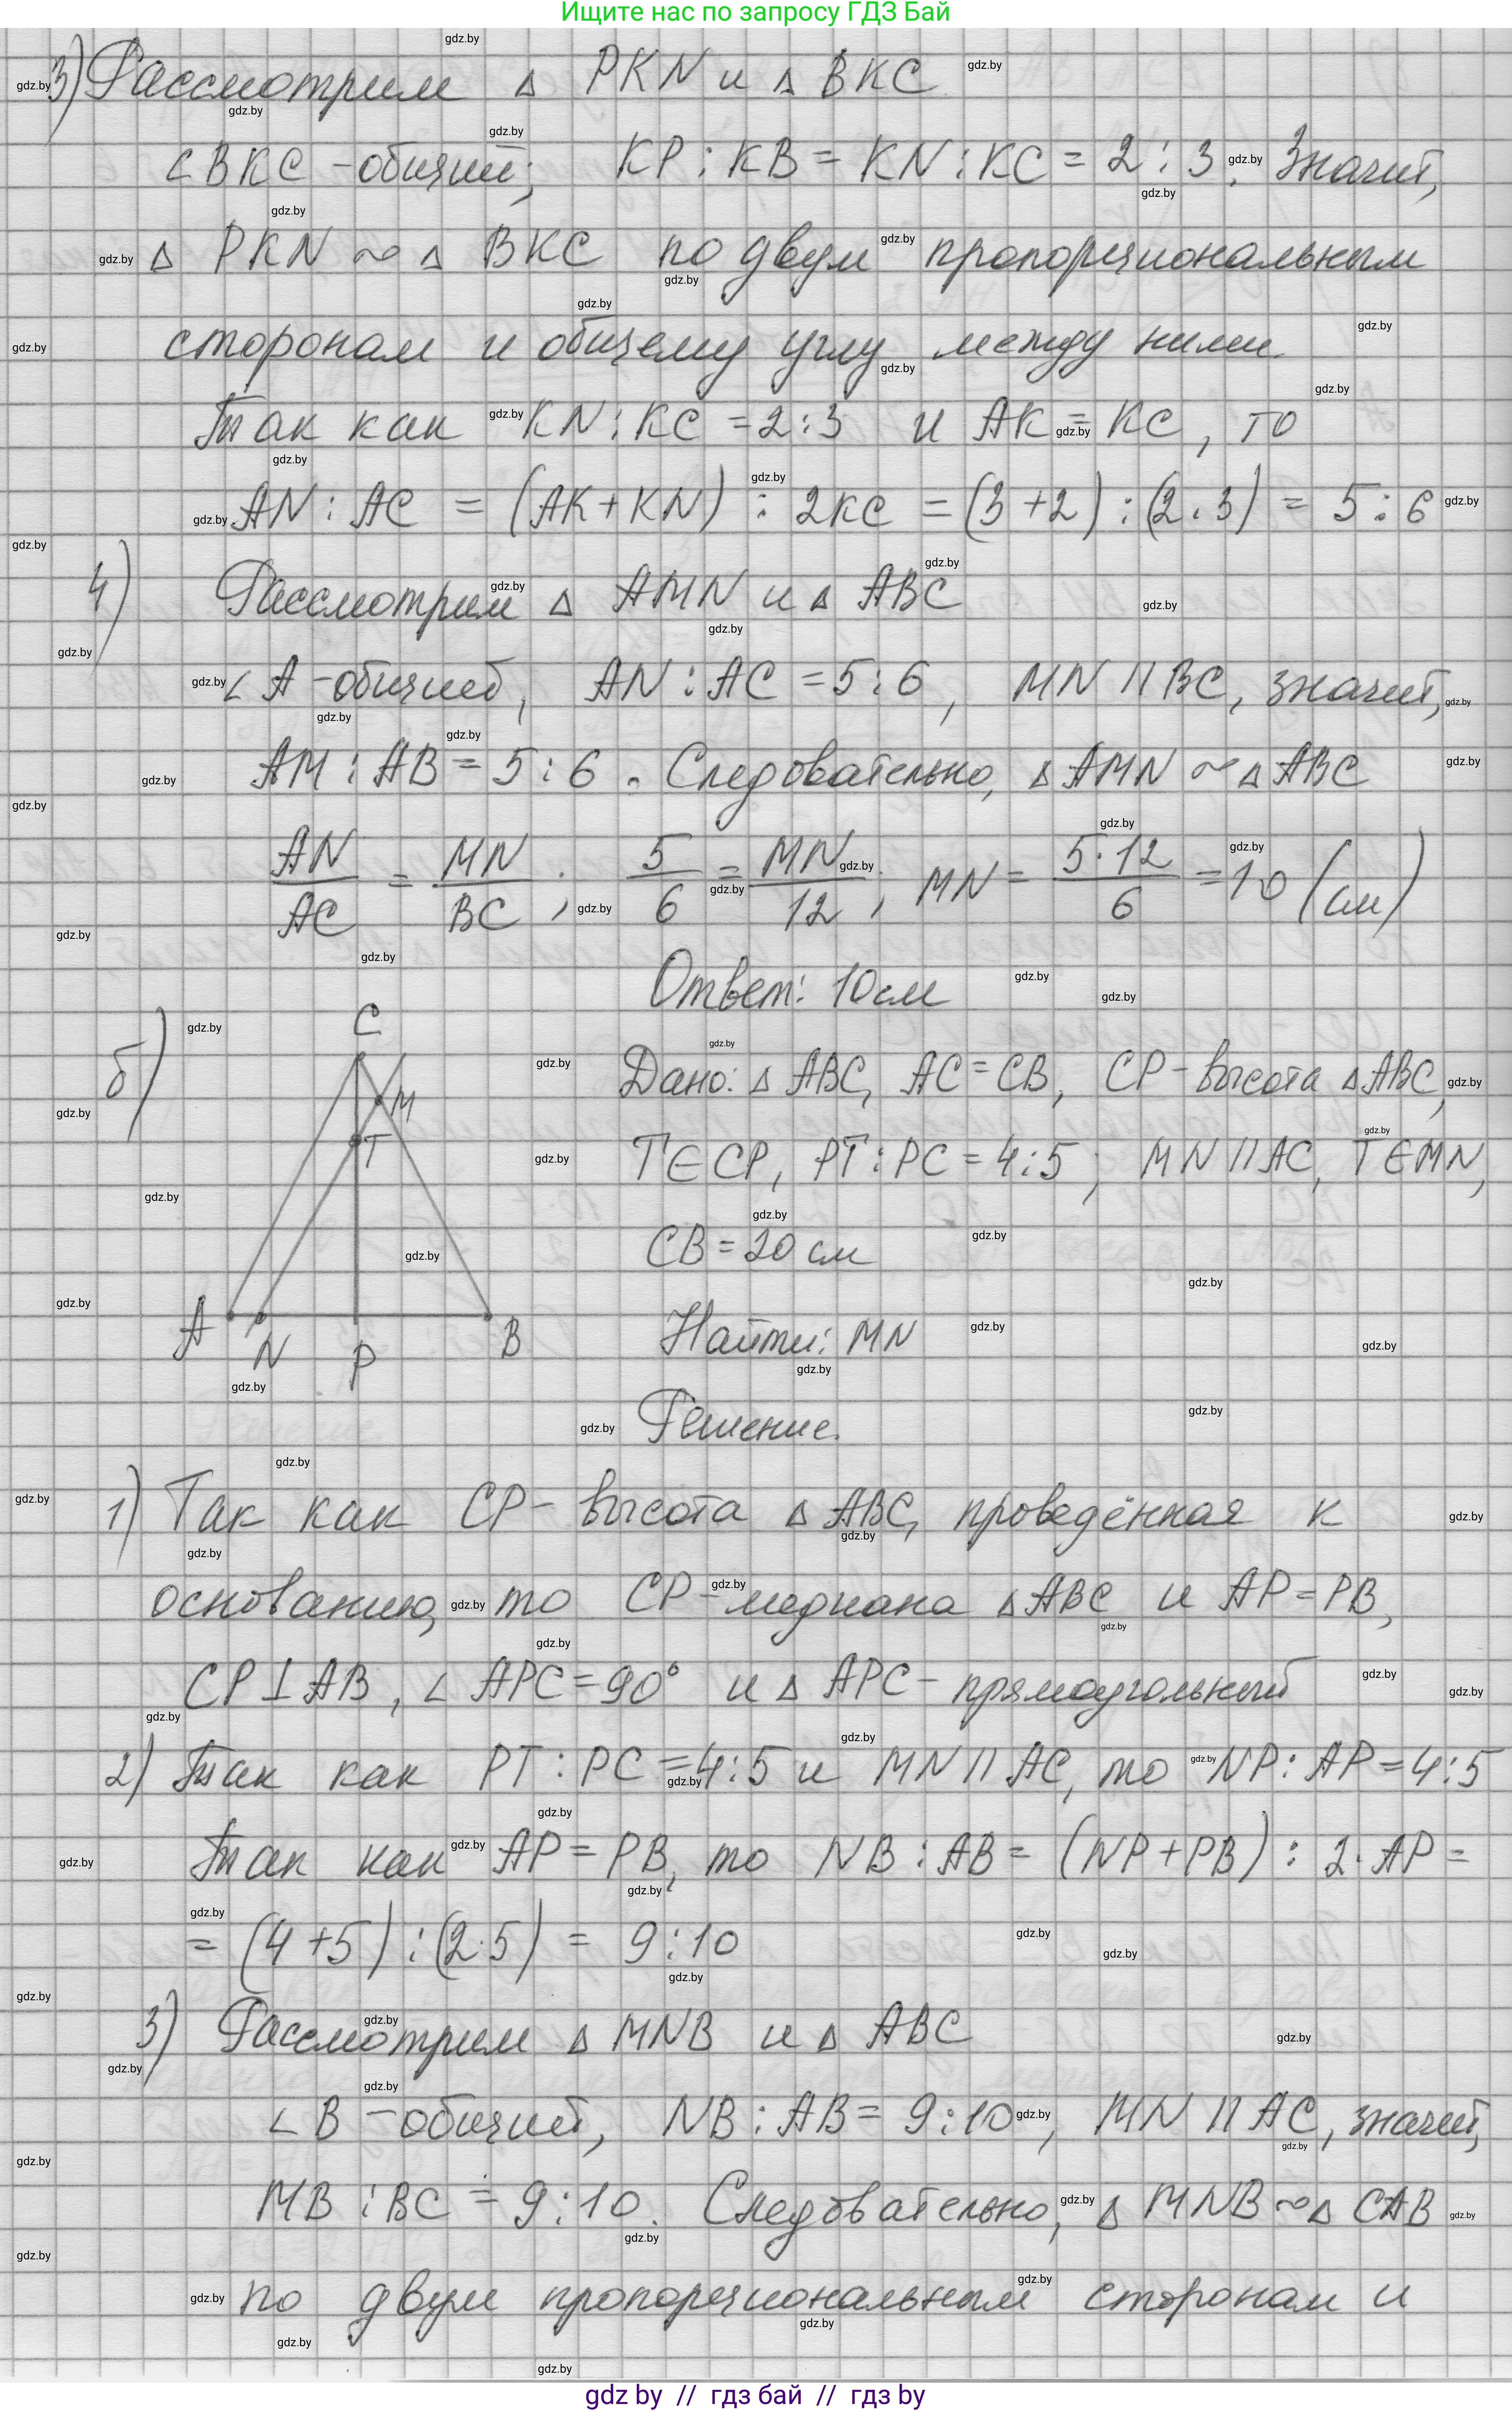 Ищите нас по запросу ГДЗ Бай
3) Рассмотрим Δ PKN и Δ BKC
∠BKC - общий; KP : KB = KN : KC = 2 : 3. Значит,
Δ PKN ~ Δ BKC по двум пропорциональным
сторонам и общему углу между ними.
Так как KN : KC = 2 : 3 и AK = KC, то
AN : AC = (AK + KN) : 2KC = (3 + 2) : (2 · 3) = 5 : 6
4) Рассмотрим Δ AMN и Δ ABC
∠ A - общий, AN : AC = 5 : 6, MN || BC, значит,
AM : AB = 5 : 6. Следовательно, Δ AMN ~ Δ ABC
AN/AC = MN/BC ; 5/6 = MN/12 ; MN = 5·12/6 = 10 (см)
Ответ: 10 см
б)
C
M
T
A
N
P
B
Дано: Δ ABC, AC = CB, CP - высота Δ ABC,
T ∈ CP, PT : PC = 4 : 5; MN || AC, T ∈ MN,
CB = 20 см
Найти: MN
Решение.
1) Так как CP - высота Δ ABC, проведённая к
основанию, то CP - медиана Δ ABC и AP = PB,
CP ⊥ AB, ∠ APC = 90° и Δ APC - прямоугольный
2) Так как PT : PC = 4 : 5 и MN || AC, то NP : AP = 4 : 5
Так как AP = PB, то NB : AB = (NP + PB) : 2 · AP =
= (4 + 5) : (2 · 5) = 9 : 10
3) Рассмотрим Δ MNB и Δ ABC
∠ B - общий, NB : AB = 9 : 10, MN || AC, значит,
MB : BC = 9 : 10. Следовательно, Δ MNB ~ Δ CAB
по двум пропорциональным сторонам и
gdz by // гдз бай // гдз by